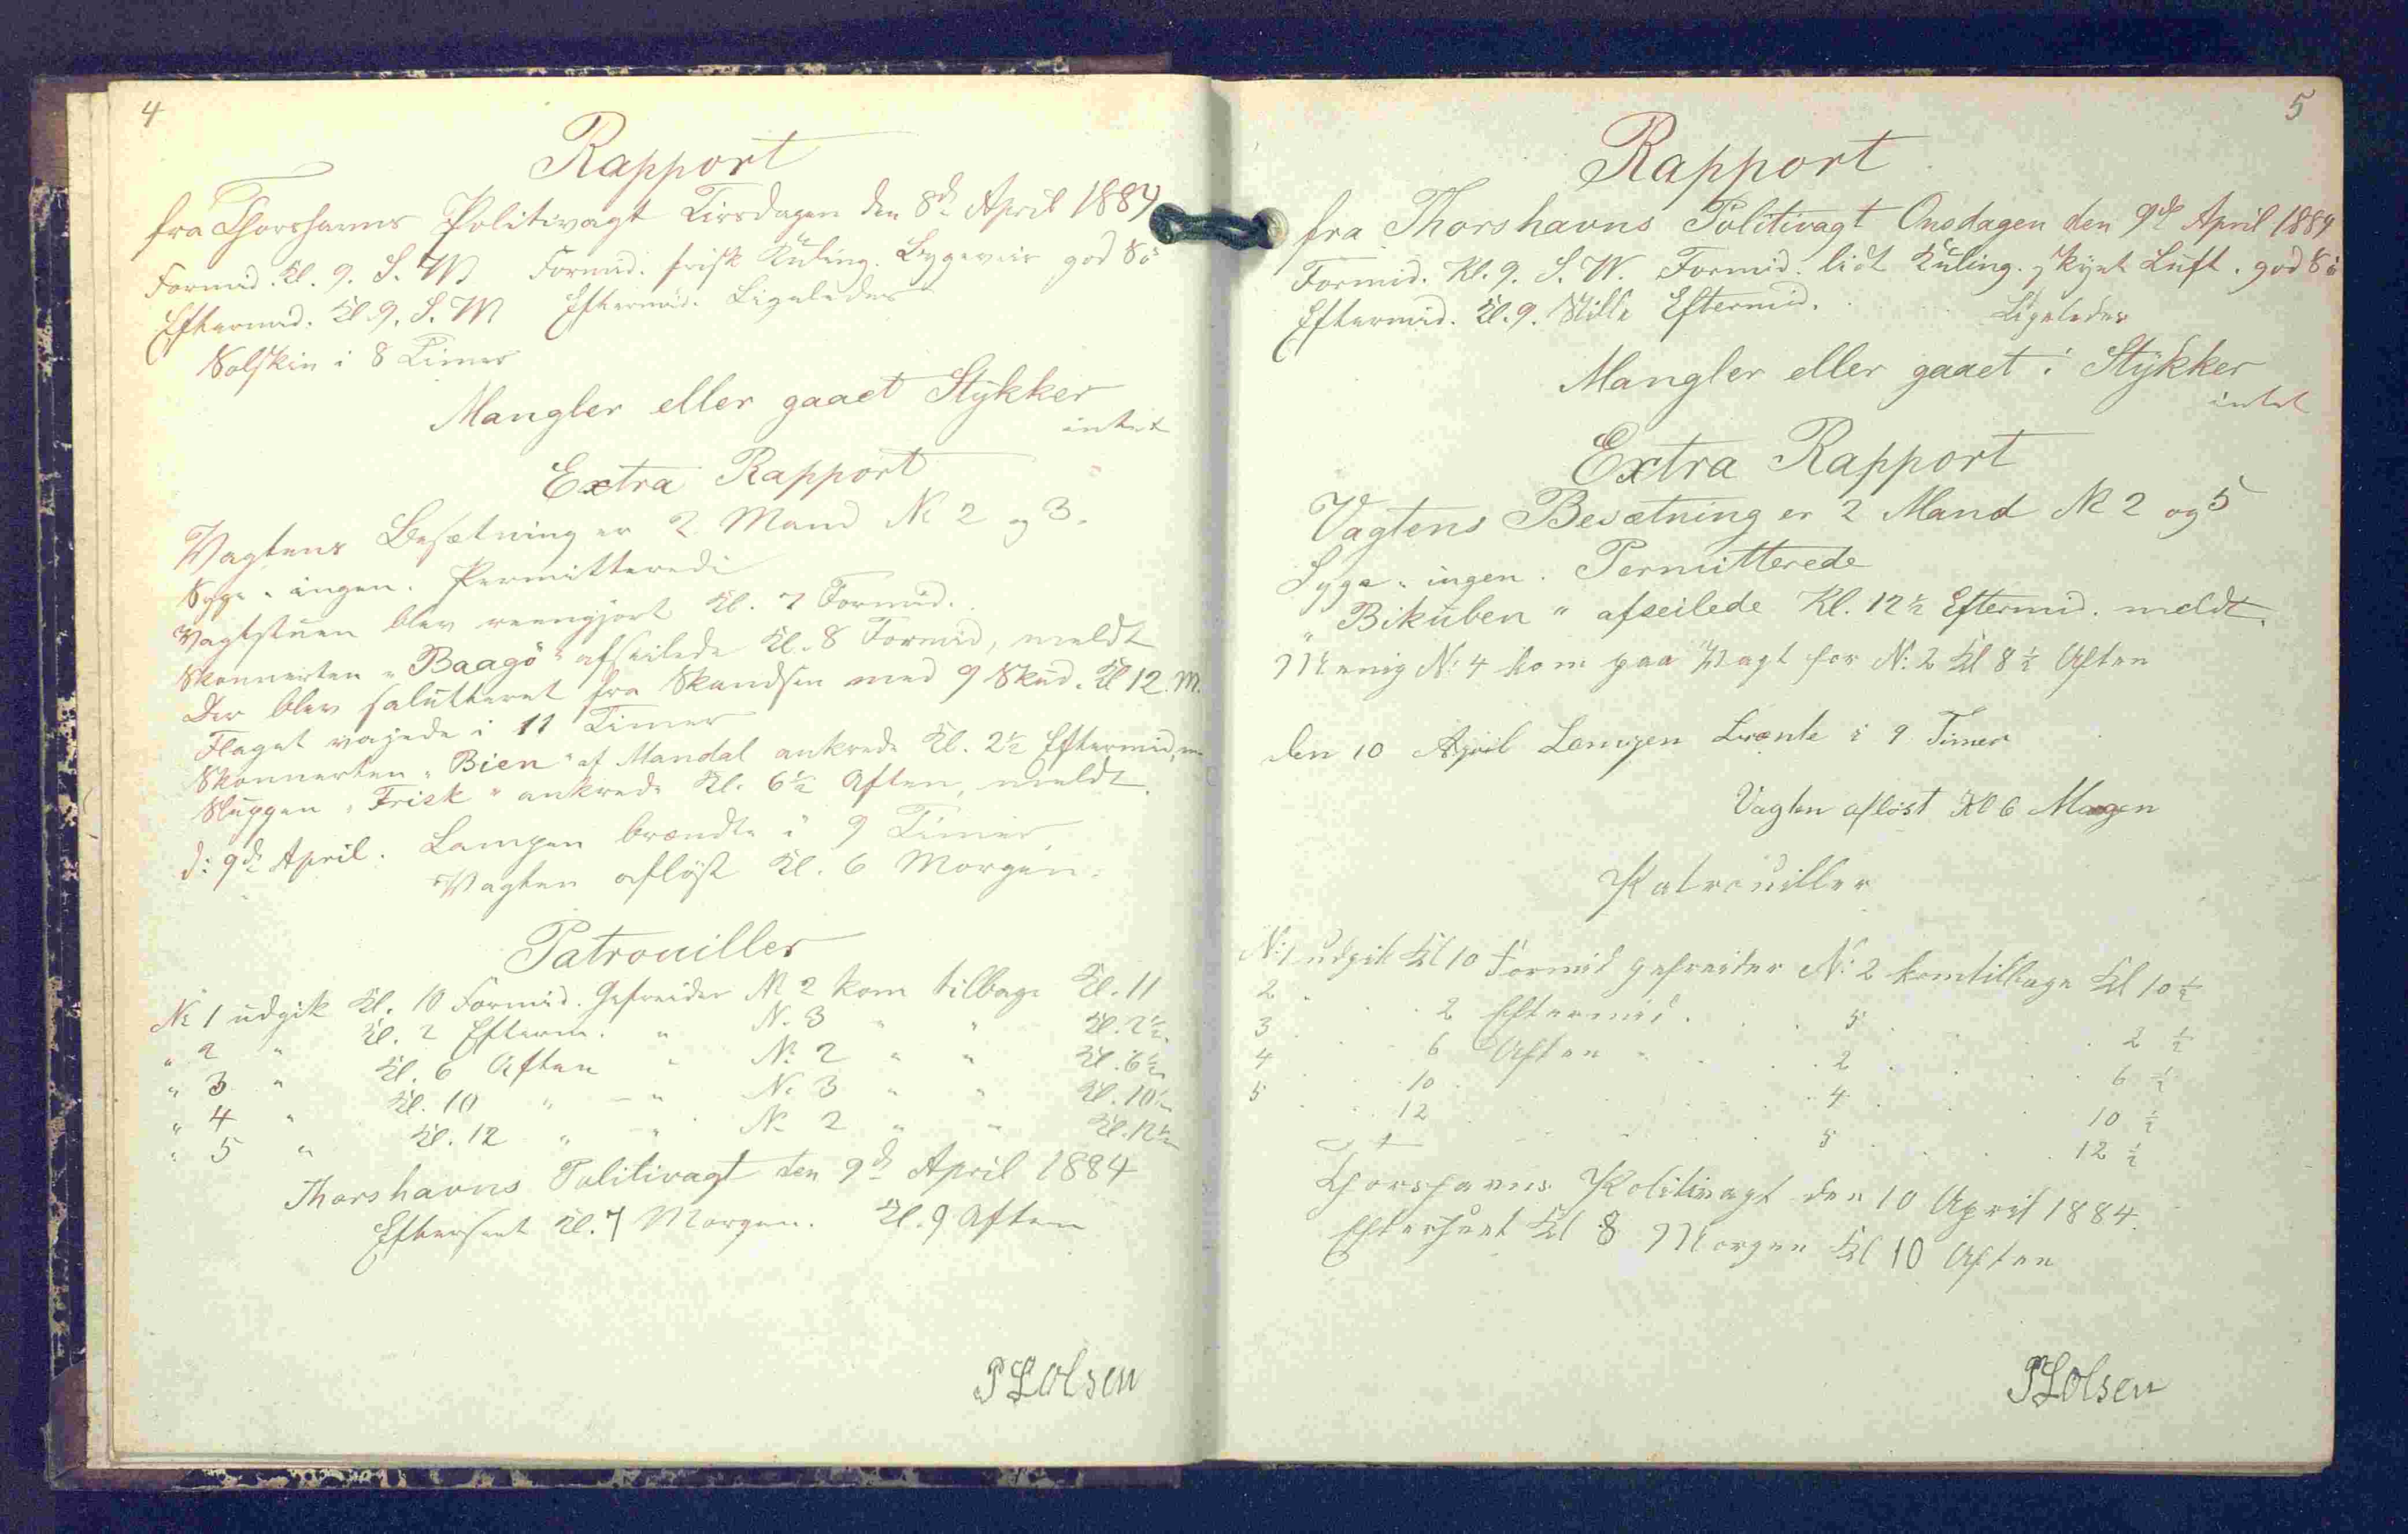 4
Rapport
fra Thorshavns Politivagt Tirsdagen den 8de April 1884
Formid. Kl. 9. S. W. Formid. frisk Kuling. Bygeveir god Sö
Eftermid. Kl. 9. S. W Eftermid. Ligeledes
Solskin i 8 Timer
Mangler eller gaaet Stykker
intet
Extra Rapport
Vagtens Besætning er 2 Mand No 2 og 3.
Syge " ingen. Permitterede
Vagtstuen blev reengjort Kl. 7 Formid.
Skonnerten "Baagö" afseilede Kl. 8 Formid, meldt
Der blev saluteret fra Skandsen med 9 Skud. Kl 12. M.
Flaget vajede i 11 Timer
Skonnerten "Bien" af Mandal ankrede Kl. 2½ Eftermid, m
Sluppen "Frisk" ankrede Kl. 6½ Aften, meldt.
d: 9de April. Lampen brændte i 9 Timer
Vagten aflöst Kl. 6 Morgen.
Patrouiller
No 1 udgik Kl. 10 Formid. Gefreider No 2 kom tilbage Kl. 11
" 2 " Kl. 2 Efterm. " No. 3 " " Kl. 2½
" 3 " Kl. 6 Aften " No 2 " " Kl. 6½
" 4 " Kl. 10 " " No. 3 " " Kl. 10½
" 5 " Kl. 12 " " No 2 " " Kl. 12½
Thorshavns Politivagt den 9de April 1884
Efterseet Kl. 7 Morgen. Kl. 9 Aften
P L Olsen
5
Rapport
fra Thorshavns Politivagt Onsdagen den 9de April 1884
Formid. Kl. 9. S. W. Formid. lidt Kuling. skyet Luft. god Sö
Eftermid. Kl. 9. Stille Eftermid. Ligeledes
Mangler eller gaaet i Stykker
intet
Extra Rapport
Vagtens Besætning er 2 Mand No 2 og 5
Syge " ingen. Permitterede
"Bikuben" afseilede Kl. 12½ Eftermid. meldt.
Menig No: 4 kom paa Vagt for No: 2 Kl 8½ Aften
den 10 April Lampen brænte i 9 Timer
Vagten aflöst Kl 6 Morgen
Patrouiller
No: 1 udgik Kl 10 Formid gefreider No: 2 kom tilbage Kl 10 ½
2 . . 2 Eftermid. . . 5 . . 2 ½
3 . . 6 Aften . . 2 . . 6 ½
4 . . 10 . . 4 . . 10 ½
5 . . 12 . . 5 . . 12 ½
Thorshavns Politivagt den 10 April 1884.
Efterseet Kl 8 Morgen Kl 10 Aften
P L Olsen